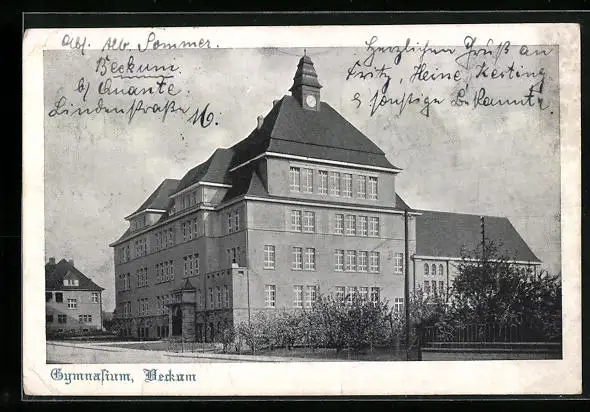 Abs. Alb. Sommer.
Beckum
b/ Quante.
Lindenstraße 16.
Herzlichen Gruß an
Fritz, Heine Kerting
& sonstige Bekannte
Gymnasium, Beckum